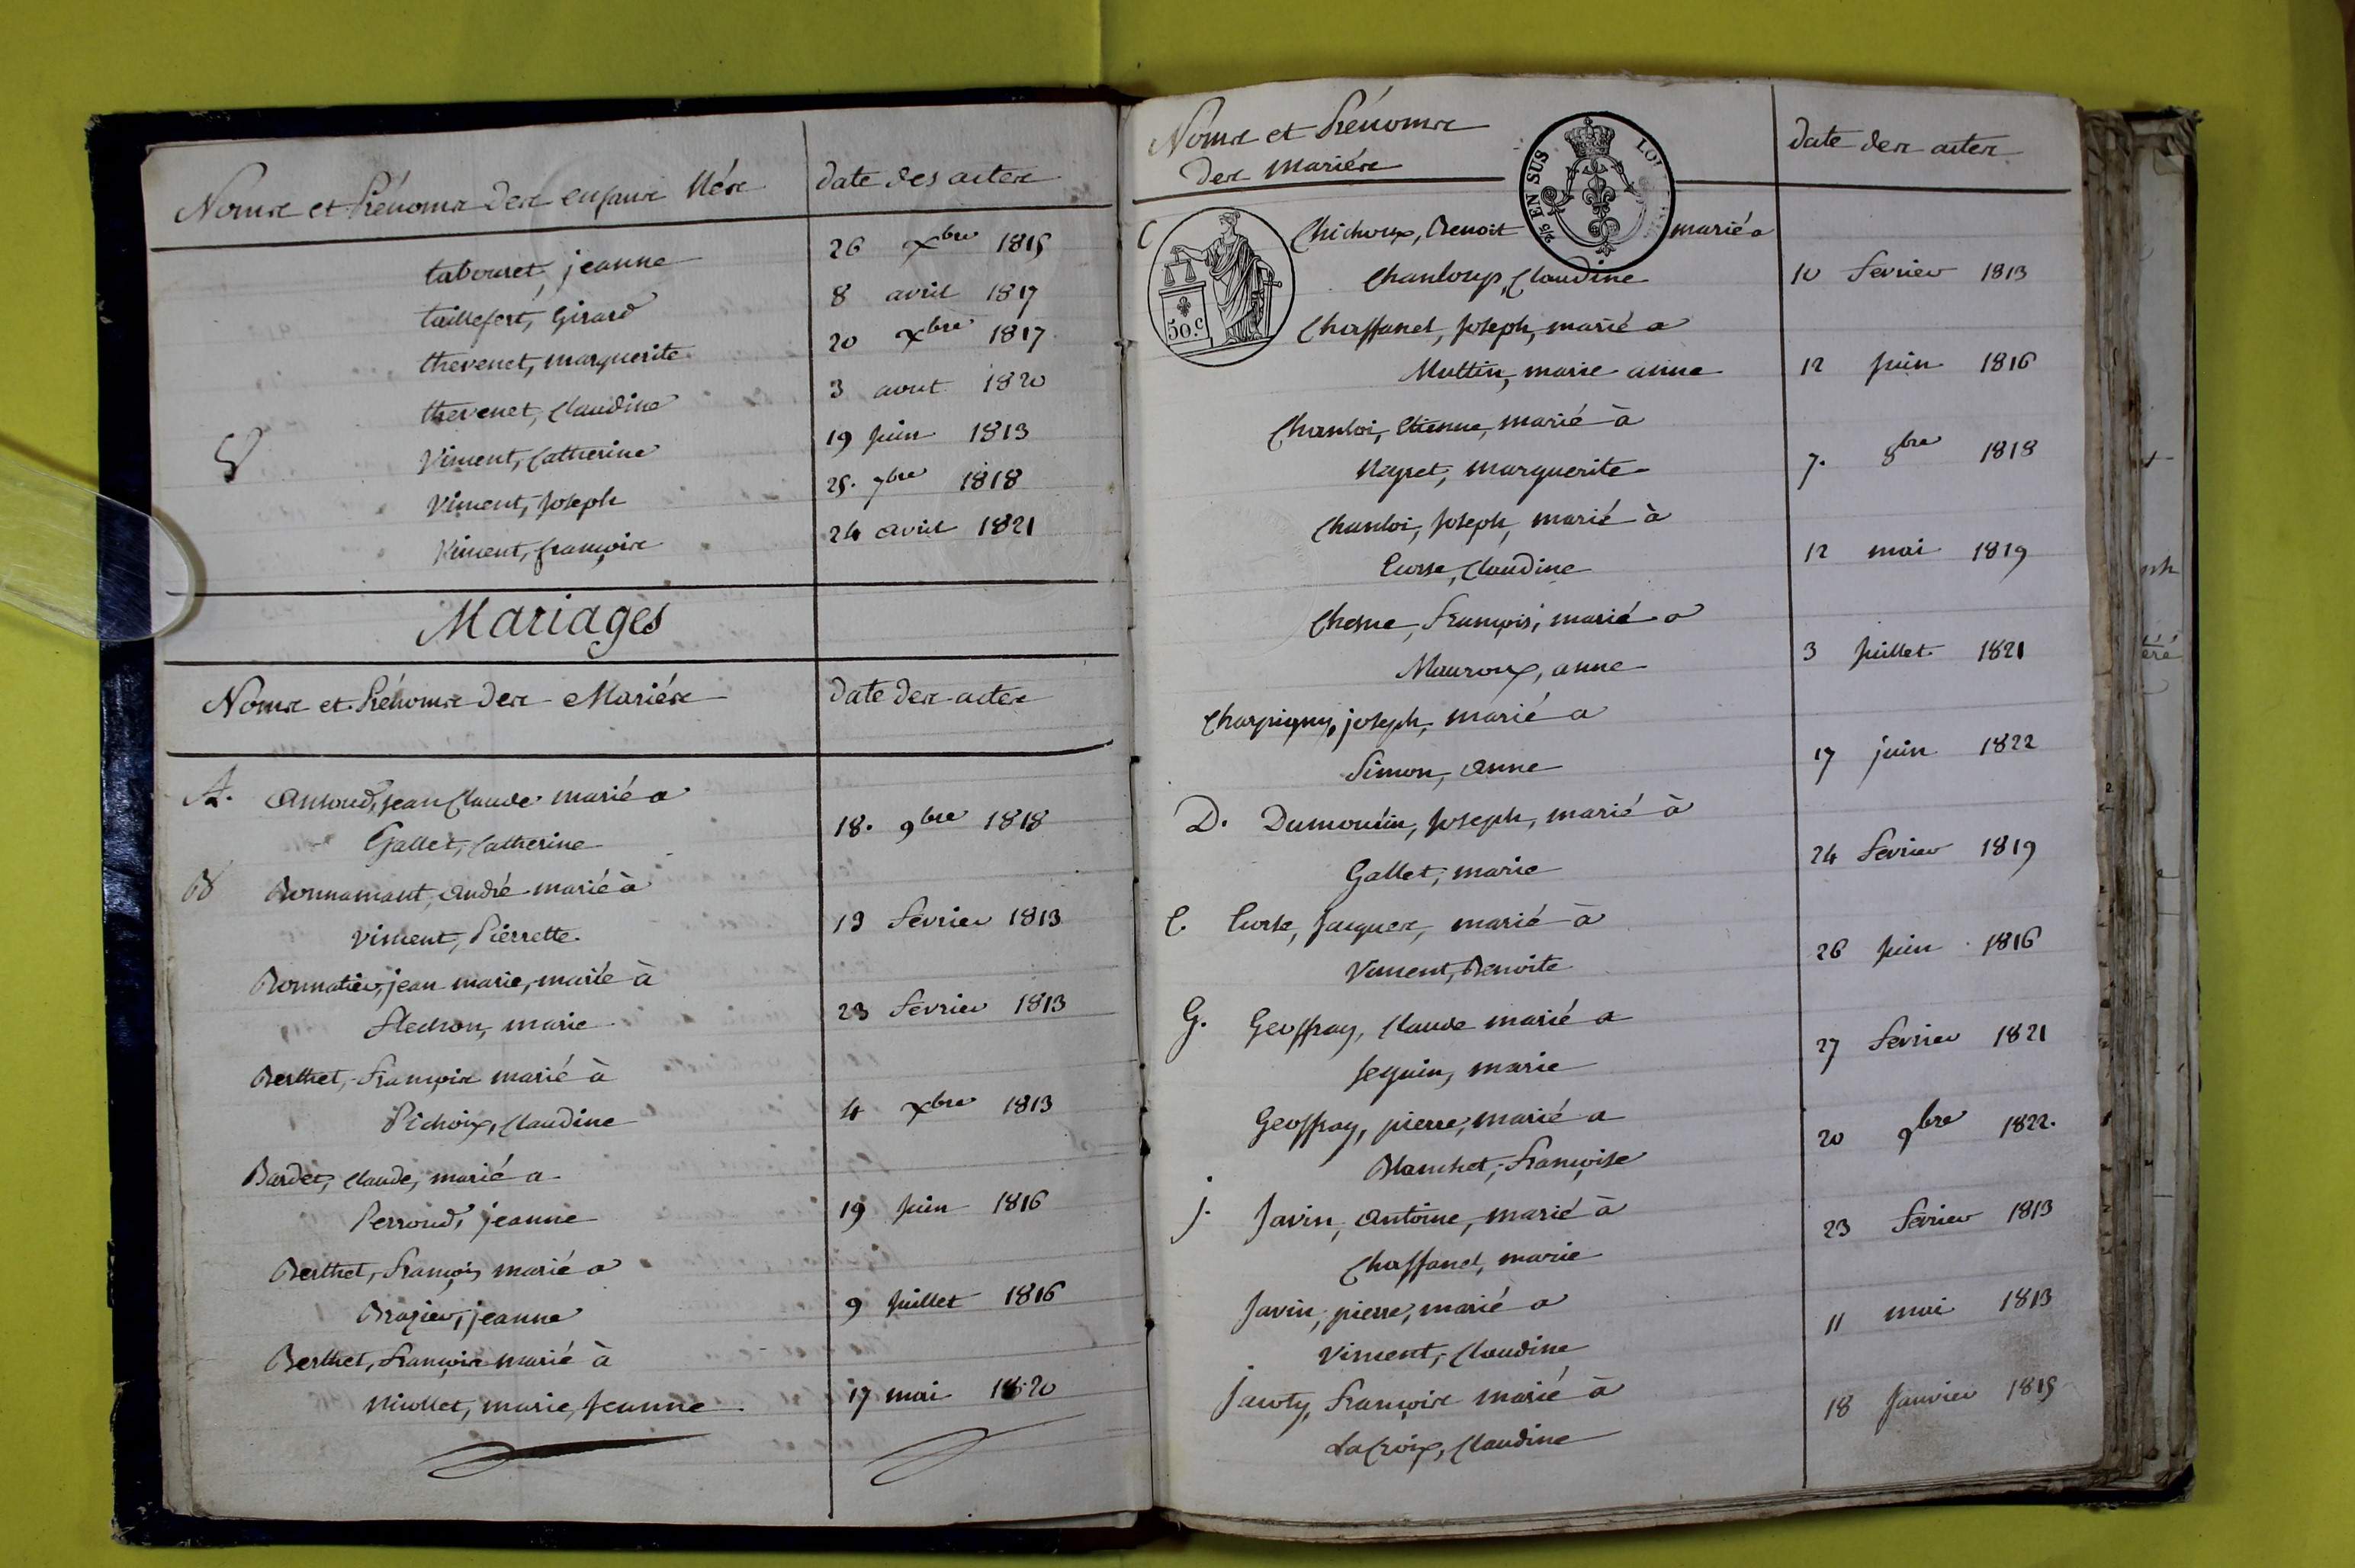 Noms et Prénoms des enfans Nés
date des actes
tabouret, jeanne
26 xbre 1815
taillefert, Girard
8 avril 1817
thevenet, marguerite
20 xbre 1817
thevenet, Claudine
3 aout 1820
V
Viment, Catherine
19 Juin 1813
Viment, Joseph
25. 7bre 1818
Viment, françois
24 avril 1821
Mariages
Noms et Prénoms des Mariés
date des actes
A. Ansoud, jean Claude marié a
Gallet, Catherine
18. 9bre 1818
B Bonnamant, André marié à
Viment, Pierrette
19 fevrier 1813
Bonnatier, jean marie, marié à
flechon, marie
23 fevrier 1813
Berthet, François marié à
Pichoix, Claudine
4 xbre 1813
Bardet, Claude, marié a
Perroud, jeanne
19 Juin 1816
Berthet, François marié a
Brazier, jeanne
9 Juillet 1816
Berthet, François marié à
Niollet, marie Jeanne
17 mai 1820
Noms et Prénoms
des mariés
date des actes
EN SUS
LOI
50.c
C Chichoux, Benoit marié a
Chanloup, Claudine
10 fevrier 1813
Chaffanel, Joseph, marié a
Muttin, marie anne
12 Juin 1816
Chanloi, Etienne, marié à
Neyret, marguerite
7. 8bre 1818
Chanloi, Joseph, marié à
Curse, Claudine
12 mai 1819
Chesne, François, marié a
Mauroux, anne
3 Juillet 1821
Charpigny, joseph, marié a
Simon, anne
17 juin 1822
D. Dumoulin, Joseph, marié à
Gallet, marie
24 fevrier 1819
C. Curse, Jacques, marié à
Viment, Benoite
26 Juin 1816
G. Geoffray, Claude marié a
Seguin, marie
27 fevrier 1821
Geoffray, pierre, marié a
Blanchet, Françoise
20 9bre 1822.
j. Javin, antoine, marié à
Chaffanel, marie
23 fevrier 1813
Javin, pierre, marié a
Viment, Claudine
11 mai 1813
Jacoty, François marié à
LaCroix, Claudine
18 Janvier 1815